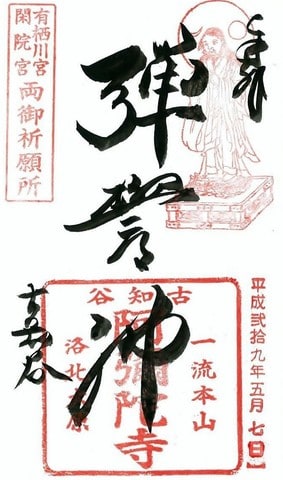 奉拝
彈誓佛
古知谷
有栖川宮
閑院宮
両御祈願所
古知谷
一流本山
阿彌陀寺
洛北大原
平成弐拾九年五月七日